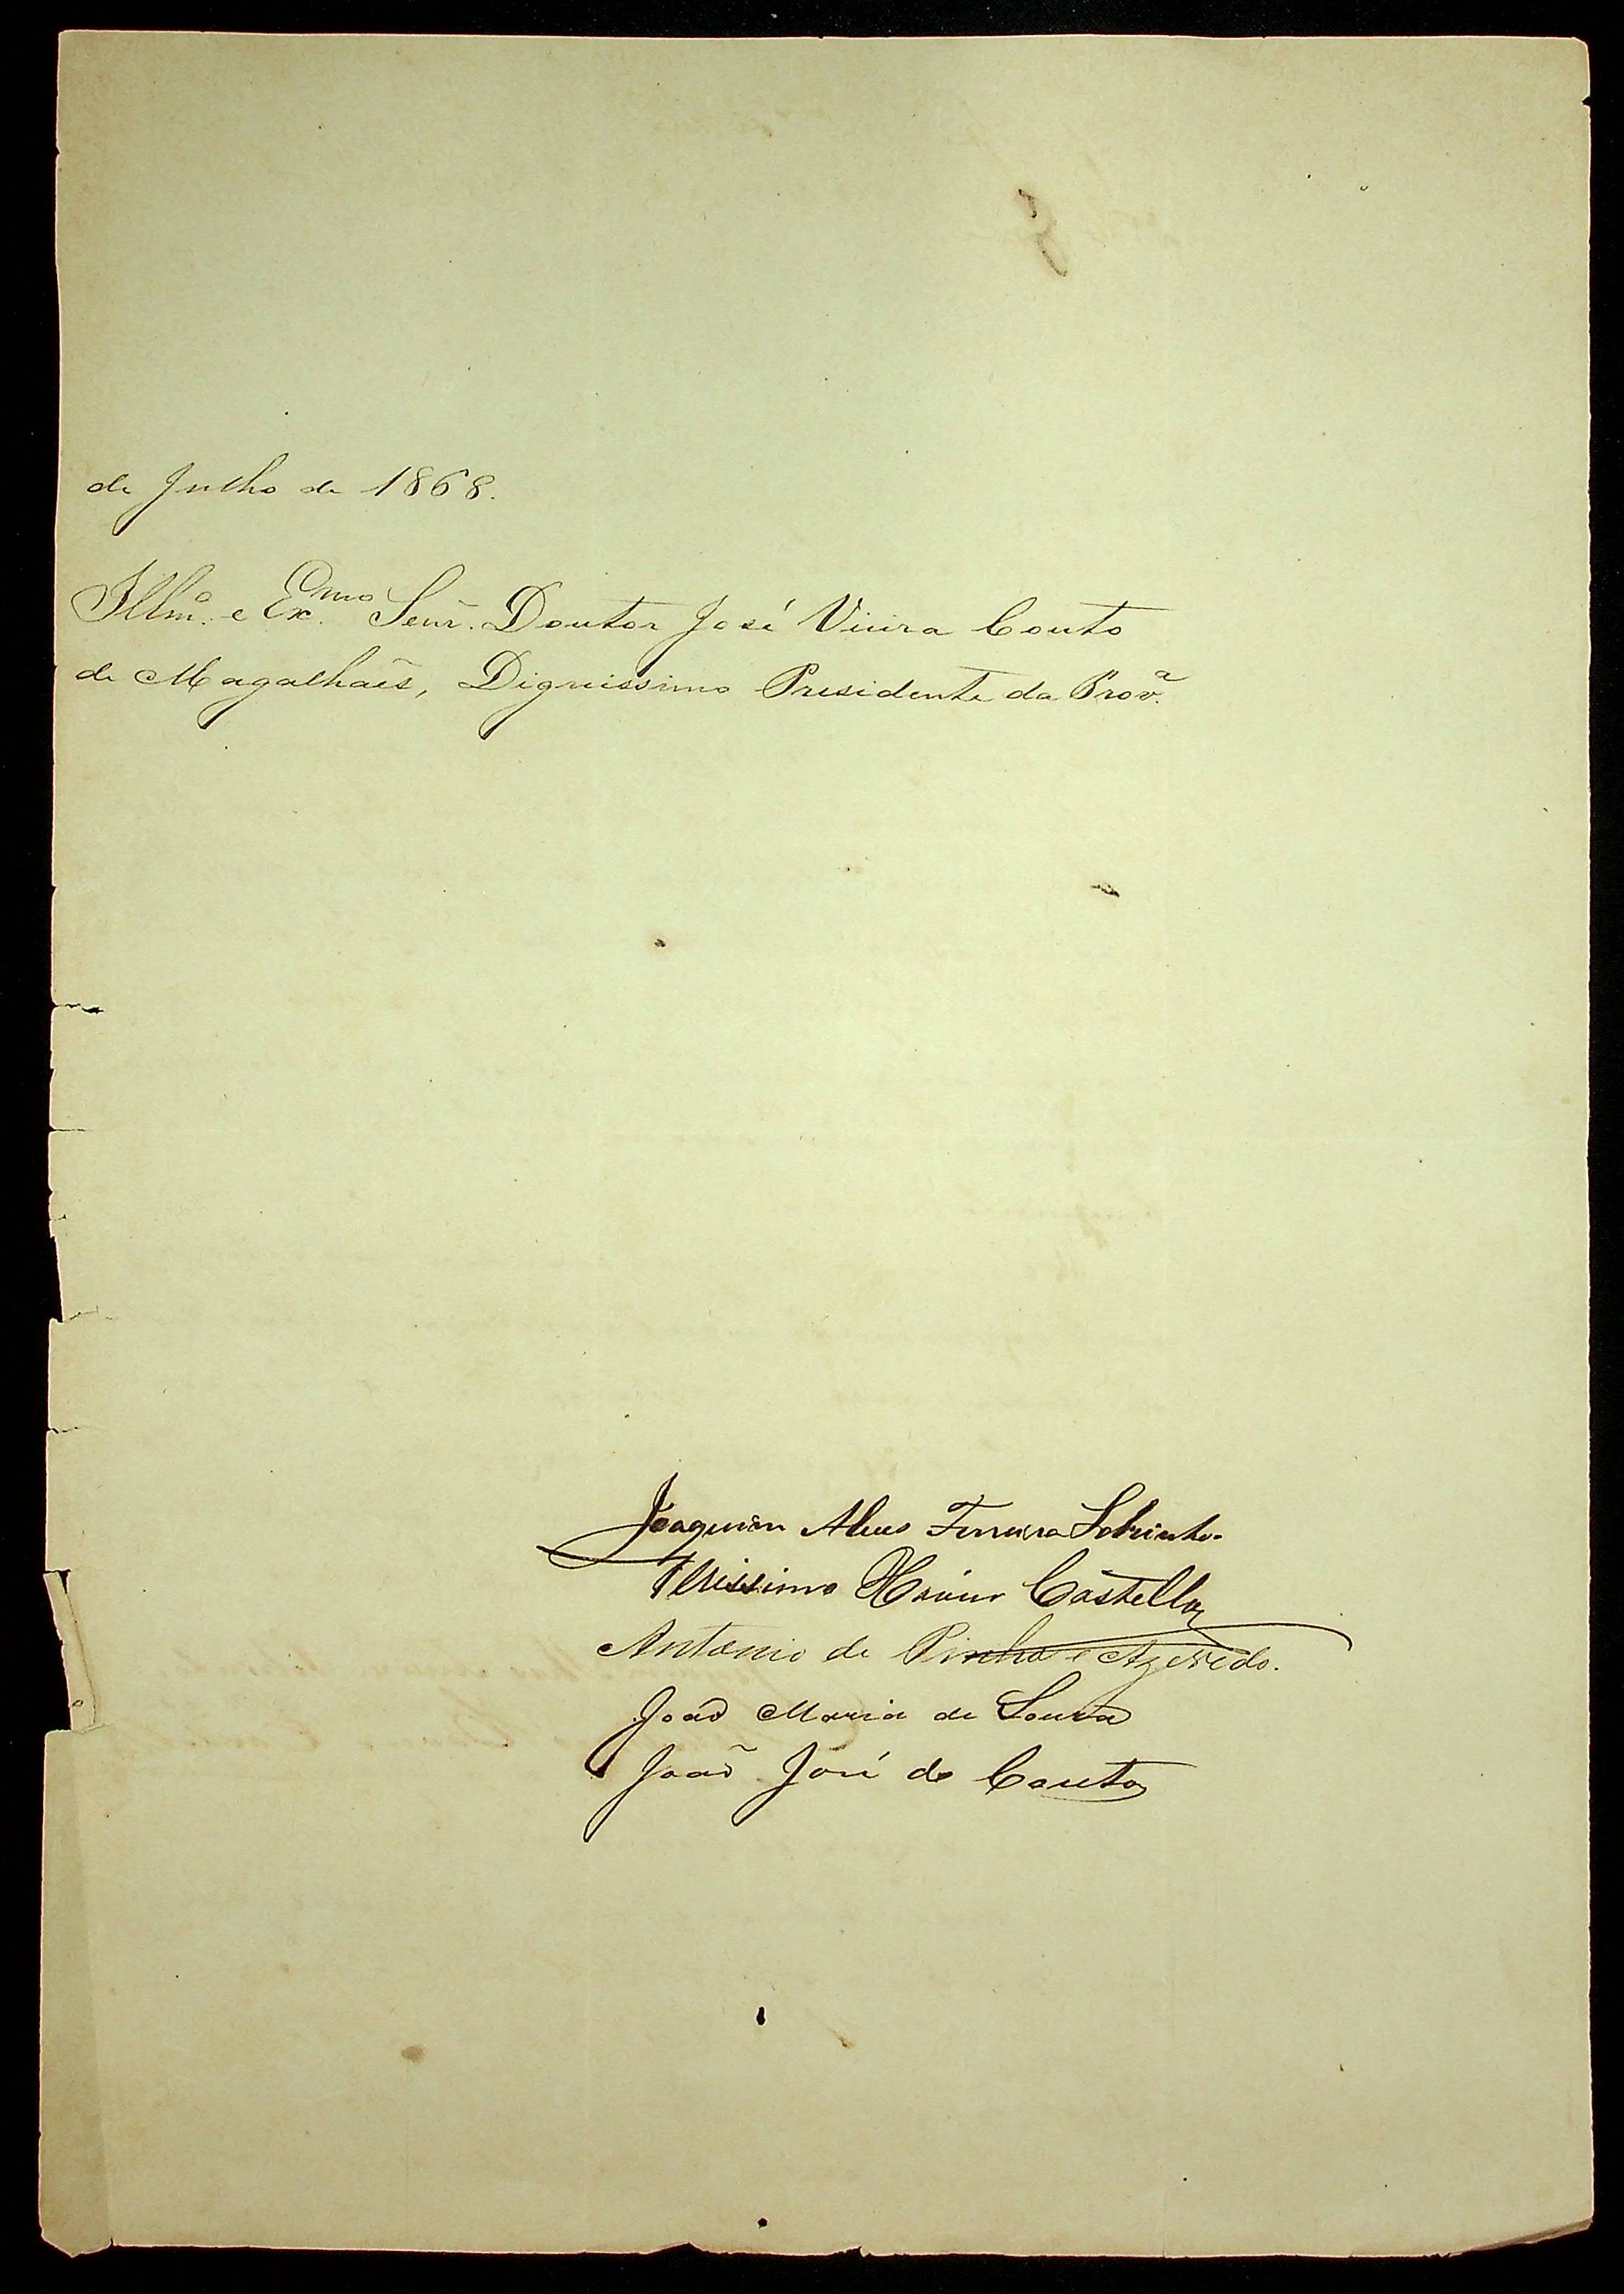 de Julho de 1868.
Illmº. e Exmo. Senr. Doutor José Vieira Couto
de Magalhaẽs, Dignissimo Presidente da Provª.
Joaquim Alves Ferreira Sobrinho.
Verissimo Xavier Castello
Antonio de Pinho e Azevedo.
João Maria de Souza
João José do Couto